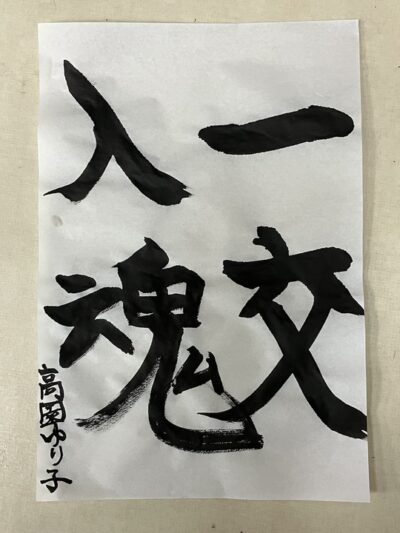 一交
入魂
高岡ゆり子